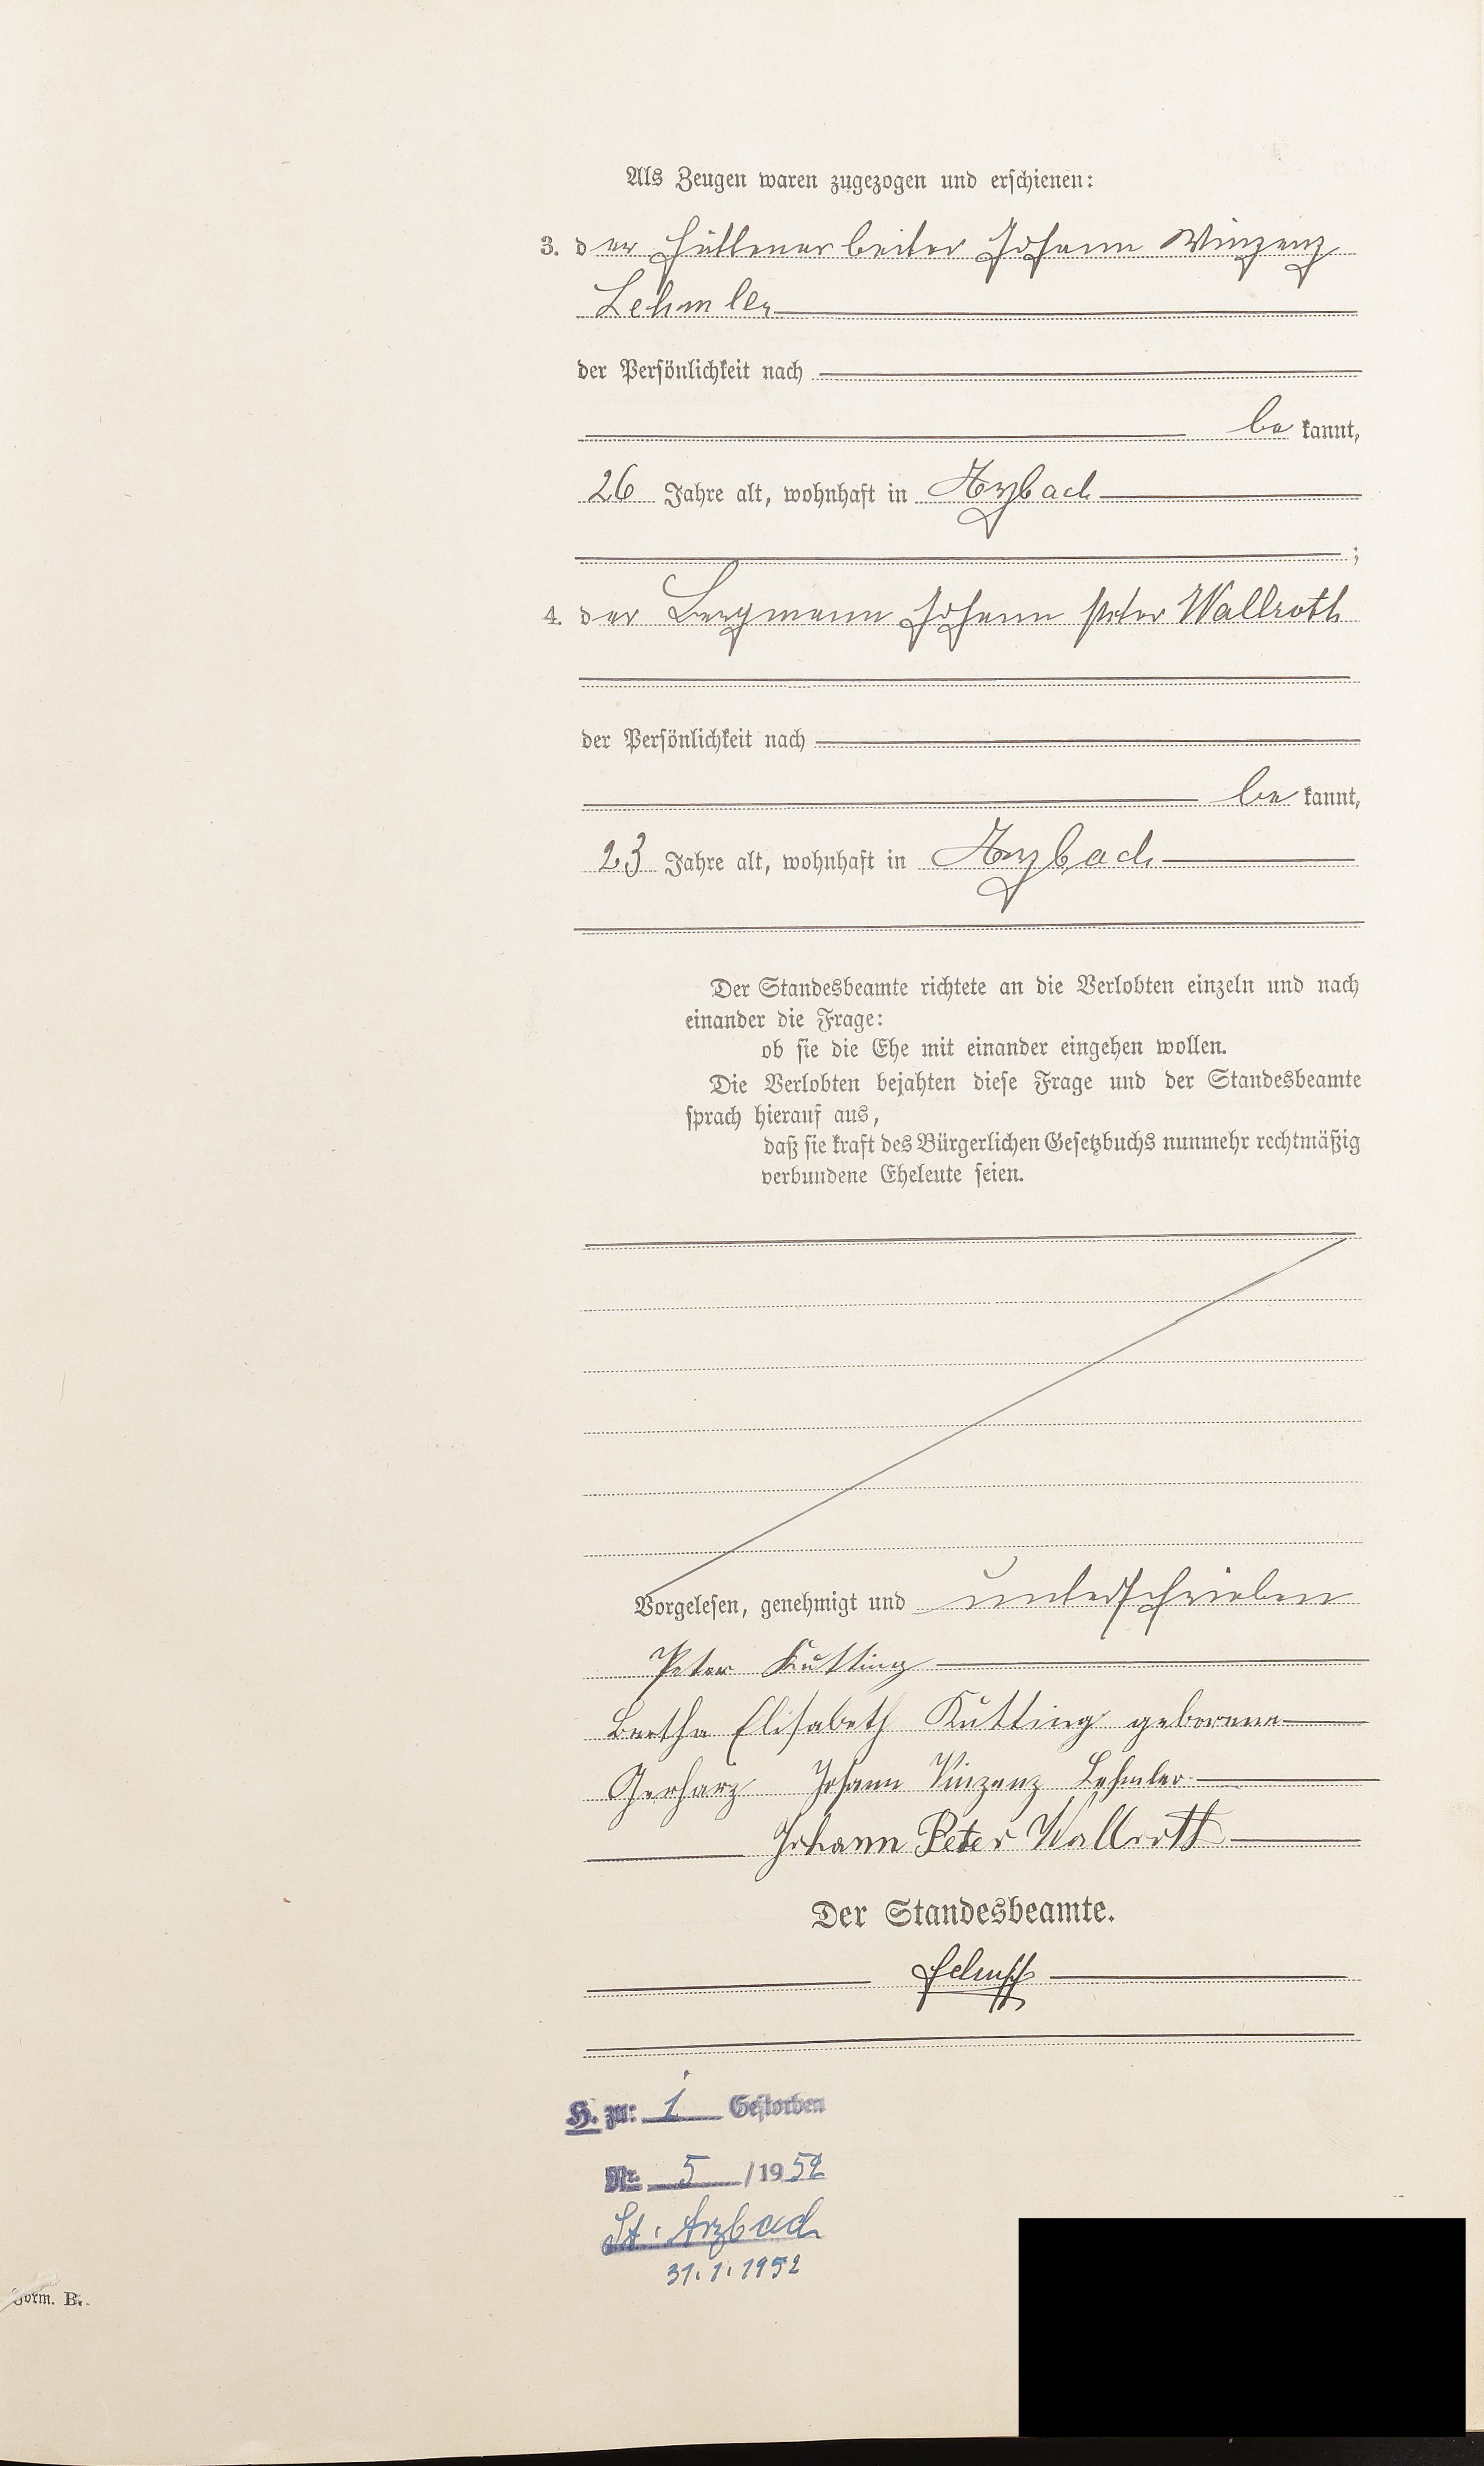 Als Zeugen waren zugezogen und erschienen:
3. der Hüttenarbeiter Johann Winzenz
Lehmler
der Persönlichkeit nach
be kannt,
26 Jahre alt, wohnhaft in Arzbach
;
4. der Bergmann Johann Peter Wallroth
der Persönlichkeit nach
be kannt,
23 Jahre alt, wohnhaft in Arzbach
Der Standesbeamte richtete an die Verlobten einzeln und nach
einander die Frage:
ob sie die Ehe mit einander eingehen wollen.
Die Verlobten bejahten diese Frage und der Standesbeamte
sprach hierauf aus,
daß sie kraft des Bürgerlichen Gesetzbuchs nunmehr rechtmäßig
verbundene Eheleute seien.
Vorgelesen, genehmigt und unterschrieben
Peter Kutting
Bertha Elisabeth Kutting geborene
Gerharz Johann Vinzenz Lehmler
Johann Peter Wallroth
Der Standesbeamte.
H. zu: 1 Gestorben
Nr. 5 / 19 52
St. Arzbach
31.1.1952
Form. B.